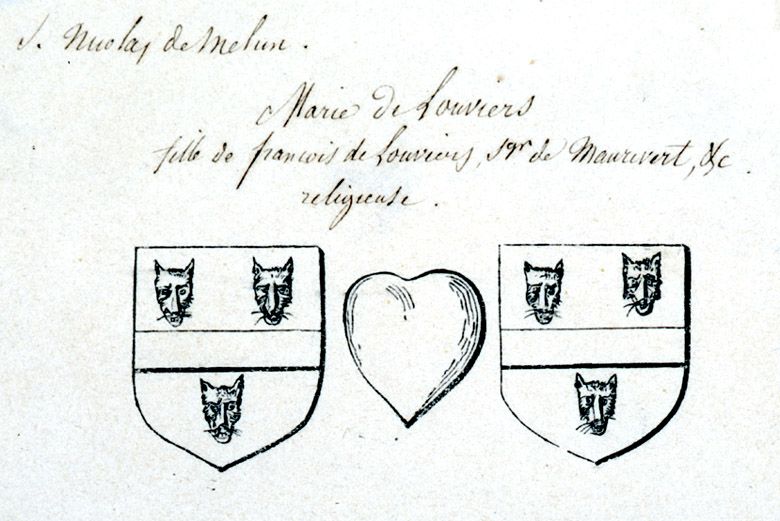 S. Nicolas de Melun.
Marie de Louviers
fille de françois de Louviers, sgr de Maurevert, &c.
religieuse.